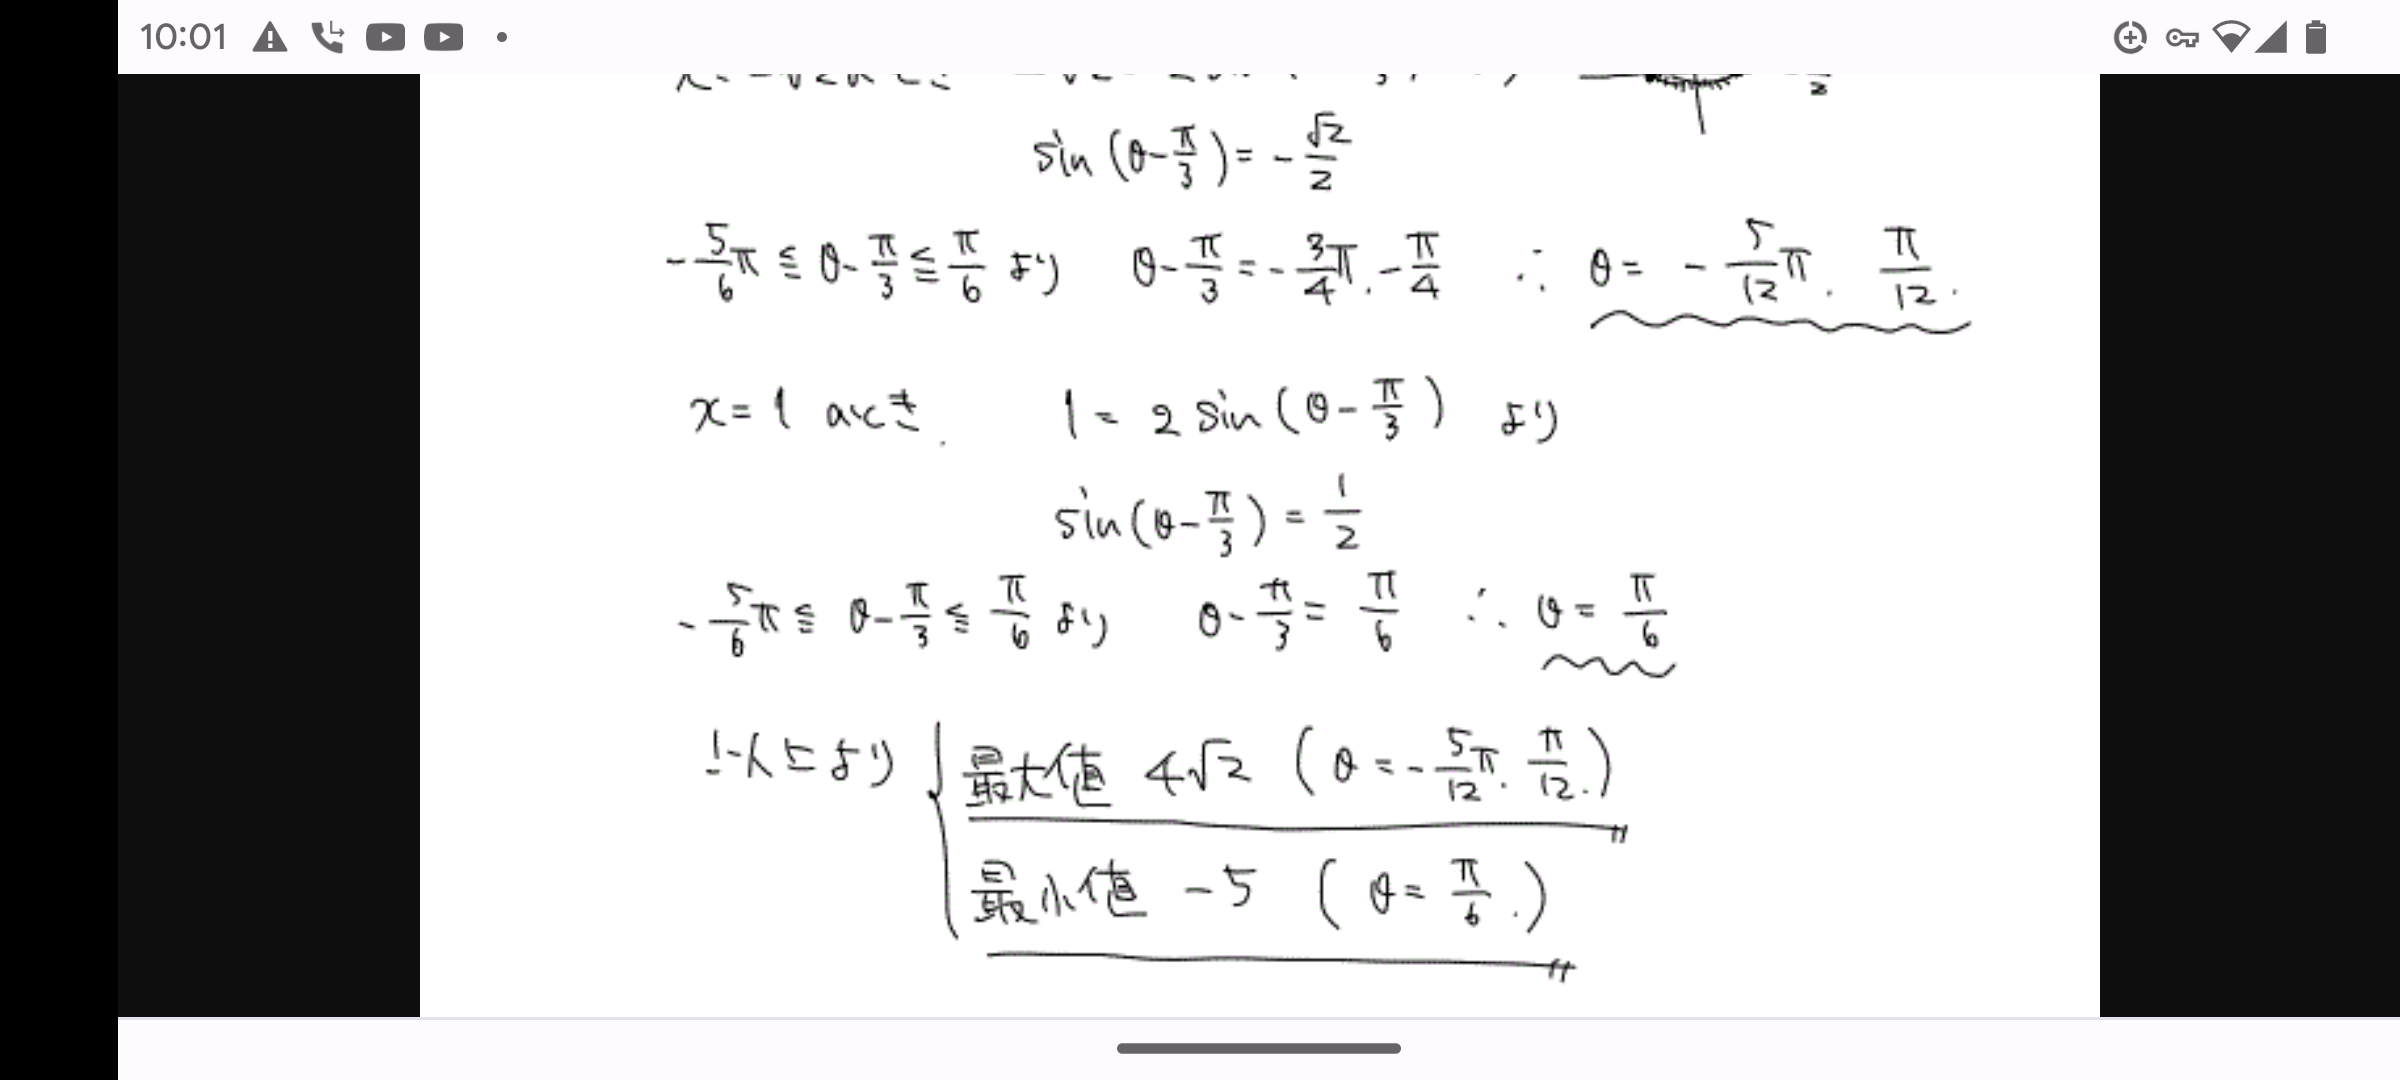 10:01
sin(θ-π/3)=-√2/2
-5/6π≦θ-π/3≦π/6 より θ-π/3=-3/4π.-π/4 ∴θ=-5/12π.π/12.
x=1 のとき. 1=2sin(θ-π/3) より
sin(θ-π/3)=1/2
-5/6π≦θ-π/3≦π/6 より θ-π/3=π/6 ∴θ=π/6
以上より
最大値 4√2 (θ=-5/12π.π/12.)
最小値 -5 (θ=π/6.)